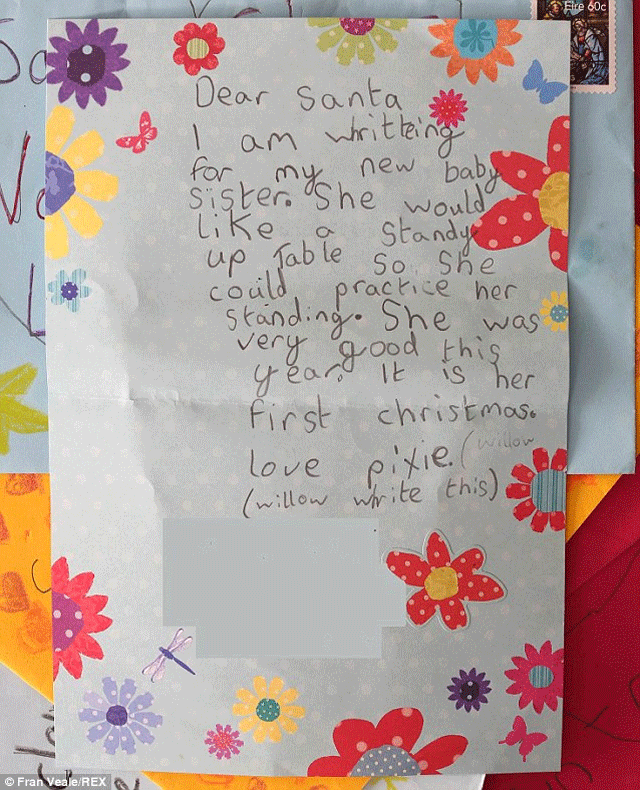 Eire 60c
Dear Santa
I am whritteing
for my new baby
sister. She would
like a standy
up Table so she
could practice her
standing. She was
very good this
year. It is her
first christmas.
love pixie. (willow
(willow whrite this)
© Fran Veale/REX